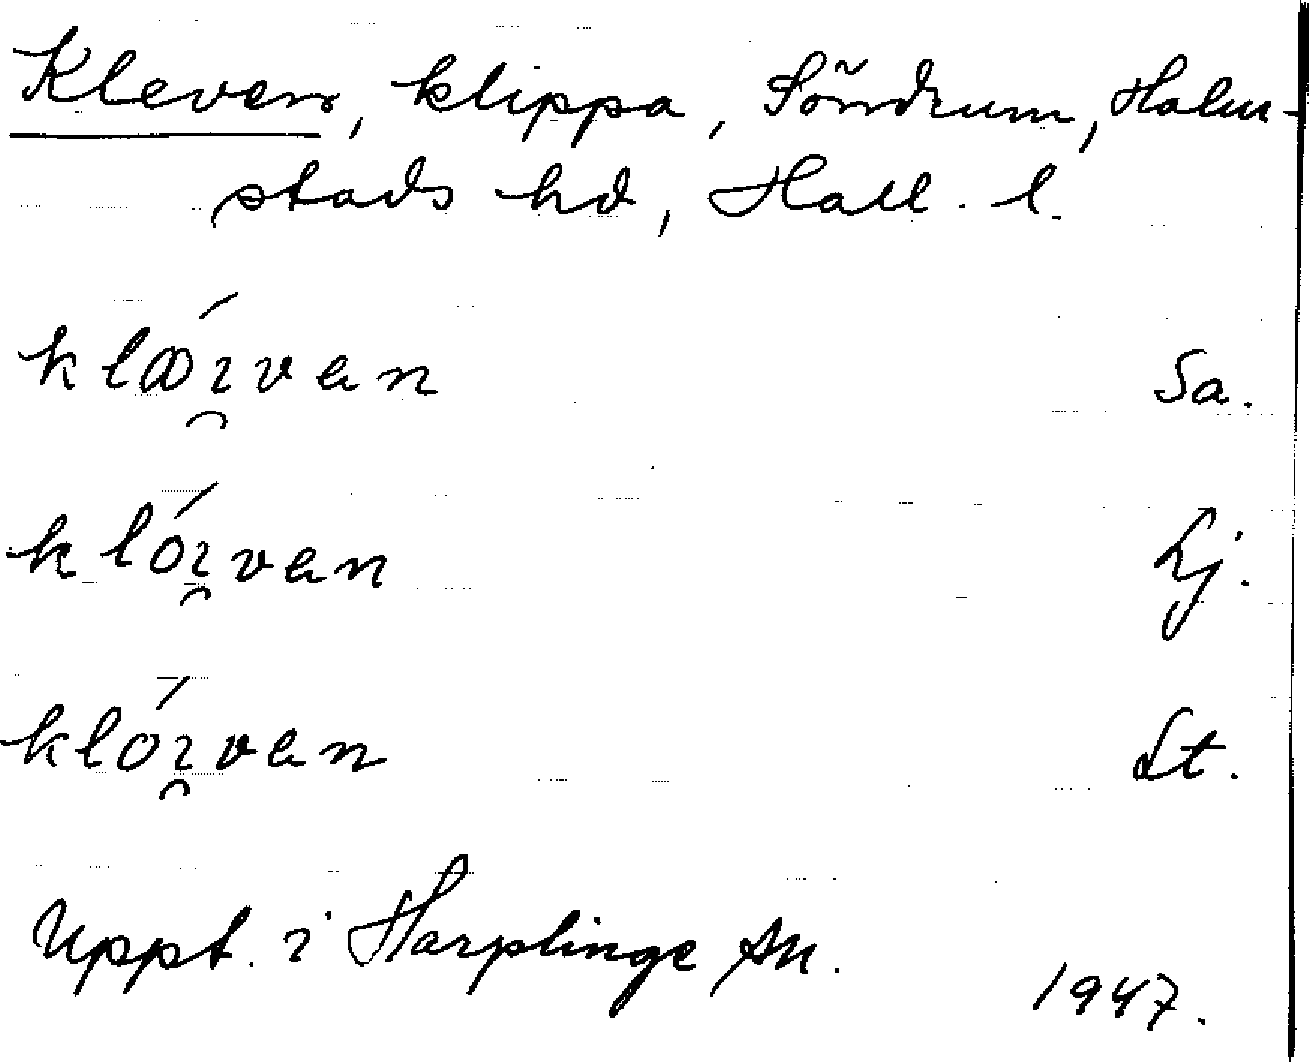 Kleven, klippa, Söndrum, Halm-
stads hd, Hall. l.
klǿı̯van Sa.
klóı̯van Lj.
klóı̯van St.
Uppt. i Harplinge sn.
1947.